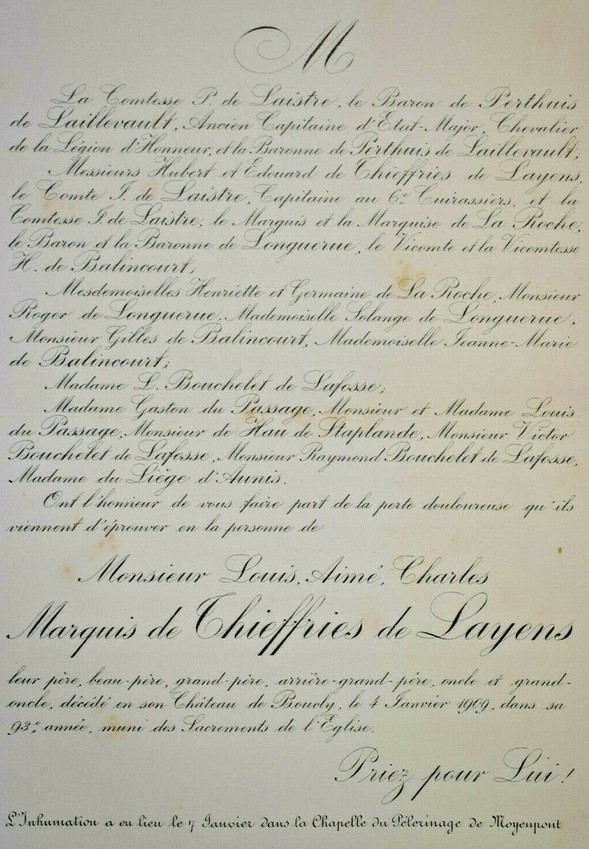 M
La Comtesse P. de Laistre, le Baron de Perthuis
de Laillevault, Ancien Capitaine d'Etat-Major, Chevalier
de la Légion d'Honneur, et la Baronne de Perthuis de Laillevault;
Messieurs Hubert et Edouard de Thieffries de Layens,
le Comte J. de Laistre, Capitaine au 6e Cuirassiers, et la
Comtesse J. de Laistre, le Marquis et la Marquise de La Roche,
le Baron et la Baronne de Longuerue, le Vicomte et la Vicomtesse
H. de Balincourt;
Mesdemoiselles Henriette et Germaine de La Roche, Monsieur
Roger de Longuerue, Mademoiselle Solange de Longuerue,
Monsieur Gilles de Balincourt, Mademoiselle Jeanne-Marie
de Balincourt;
Madame L. Bouchelet de Lafosse;
Madame Gaston du Passage, Monsieur et Madame Louis
du Passage, Monsieur de Hau de Staplande, Monsieur Victor
Bouchelet de Lafosse, Monsieur Raymond Bouchelet de Lafosse,
Madame du Liège d'Aunis.
Ont l'honneur de vous faire part de la perte douloureuse qu'ils
viennent d'éprouver en la personne de
Monsieur Louis, Aimé, Charles
Marquis de Thieffries de Layens
leur père, beau-père, grand-père, arrière-grand-père, oncle et grand-
oncle, décédé en son Château de Boucly, le 4 Janvier 1909, dans sa
93me année, muni des Sacrements de l'Eglise.
Priez pour Lui!
L'Inhumation a eu lieu le 7 Janvier dans la Chapelle du Pèlerinage de Moyenpont